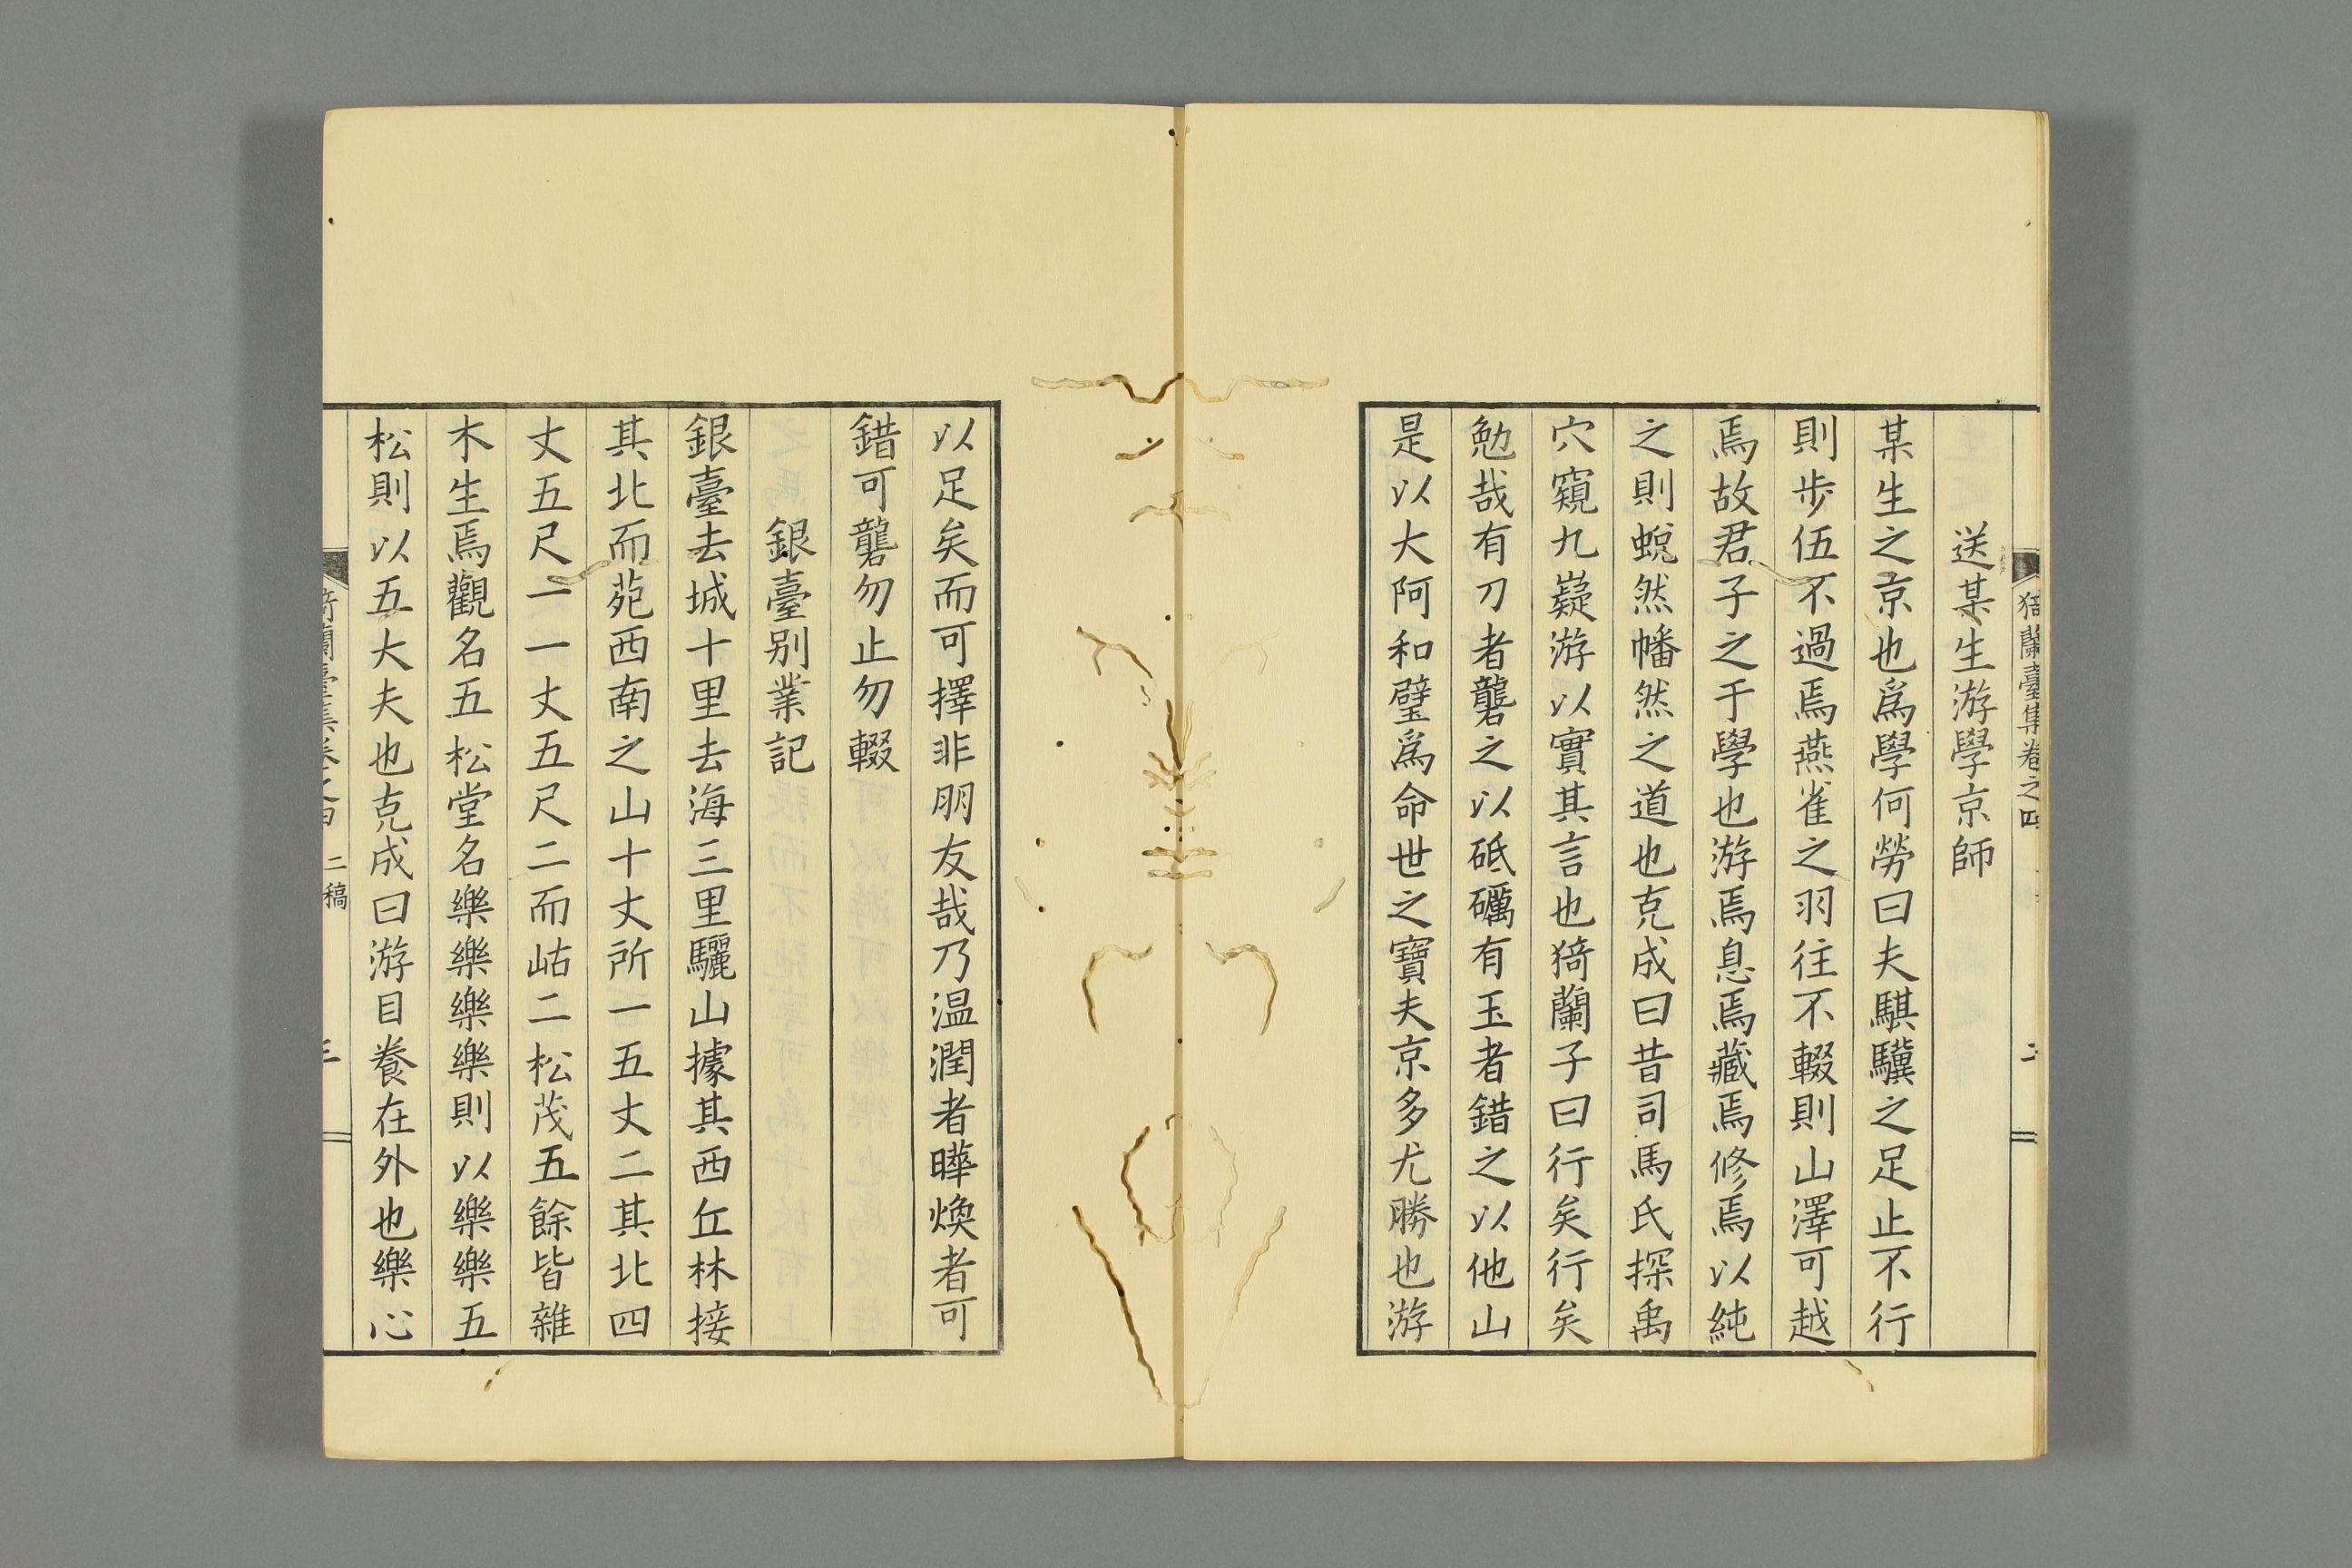 猗蘭臺集卷之四
二
送某生游學京師
某生之京也爲學何勞曰夫騏驥之足止不行
則步伍不過焉燕雀之羽往不輟則山澤可越
焉故君子之于學也游焉息焉藏焉修焉以純
之則蛻然幡然之道也克成曰昔司馬氏探禹
穴窺九嶷游以實其言也猗蘭子曰行矣行矣
勉哉有刀者礱之以砥礪有玉者錯之以他山
是以大阿和璧爲命世之寶夫京多尤勝也游
以足矣而可擇非朋友哉乃温潤者曄煥者可
錯可礱勿止勿輟
銀臺别業記
銀臺去城十里去海三里驪山據其西丘林接
其北而菀西南之山十丈所一五丈二其北四
丈五尺一一丈五尺二而岵二松茂五餘皆雜
木生焉觀名五松堂名樂樂樂樂則以樂樂五
松則以五大夫也克成曰游目養在外也樂心
猗蘭臺集卷之四 二稿
三